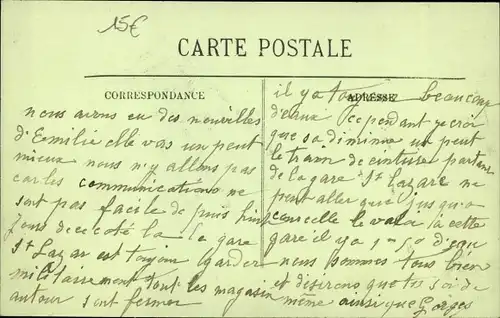 15€
CARTE POSTALE
CORRESPONDANCE
nous avons eu des nouvelles
d'Emilie elle vas un peut
mieux nous n'y allons pas
car les communications ne
sont pas facile de puis
de coté la la gare
St Lazar est toujou garder
militairement tout les magasin
autour sont fermer
ADRESSE
il y a beaucoup
d'eaux cependant je croi
que sa diminue un peut
le train de ceinture partant
de la gare St Lazare ne
peut aller que jusqu'a
courcelle le valoi a cette
gare il y a 1m50 d'eau
nous sommes tous bien
et désirons que tu soi de
même ainsi que Gorges